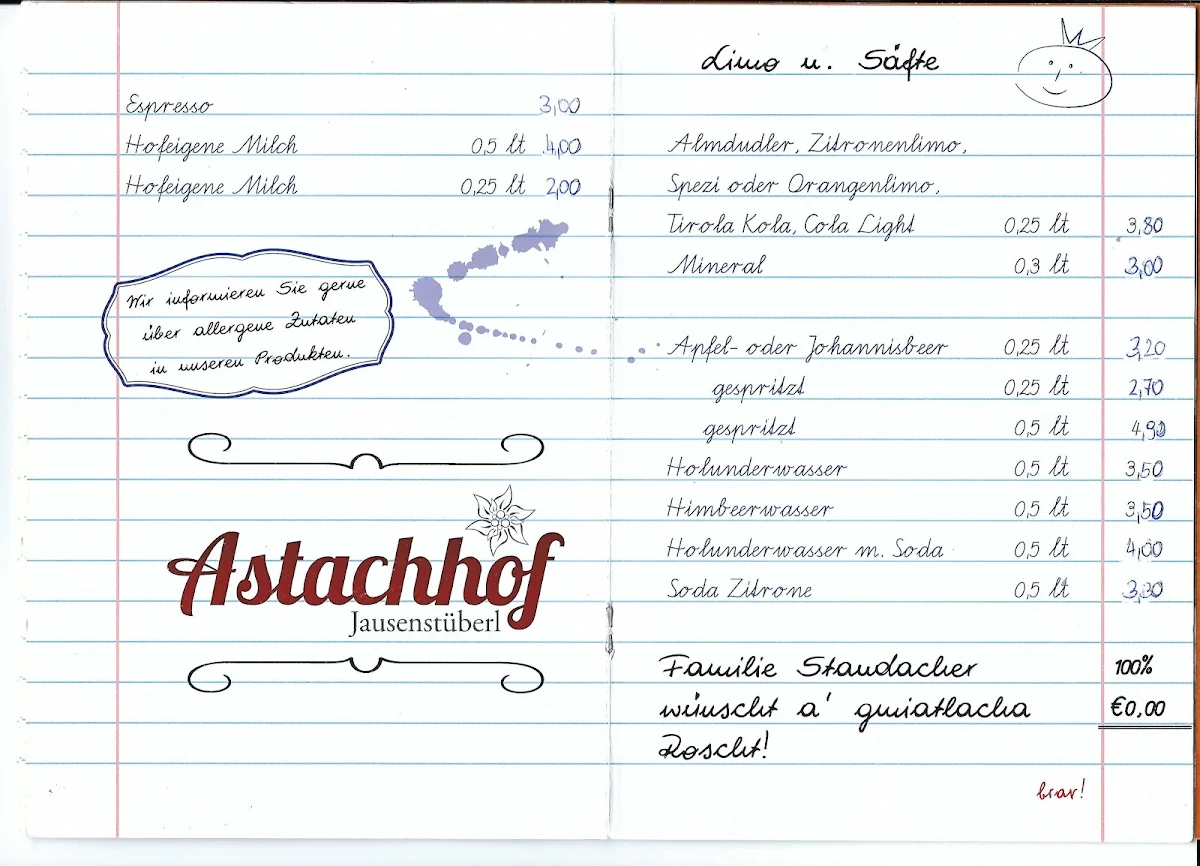 Espresso 3,00
Hofeigene Milch 0,5 lt 4,00
Hofeigene Milch 0,25 lt 2,00
Wir informieren Sie gerne
über allergene Zutaten
in unseren Produkten.
Astachhof
Jausenstüberl
Limo u. Säfte
Almdudler, Zitronenlimo,
Spezi oder Orangenlimo,
Tirola Kola, Cola Light 0,25 lt 3,80
Mineral 0,3 lt 3,00
Apfel- oder Johannisbeer 0,25 lt 3,20
gespritzt 0,25 lt 2,70
gespritzt 0,5 lt 4,90
Holunderwasser 0,5 lt 3,50
Himbeerwasser 0,5 lt 3,50
Holunderwasser m. Soda 0,5 lt 4,00
Soda Zitrone 0,5 lt
Familie Staudacher 100%
wünscht a' gmiatlacha €0,00
Roscht!
brav!